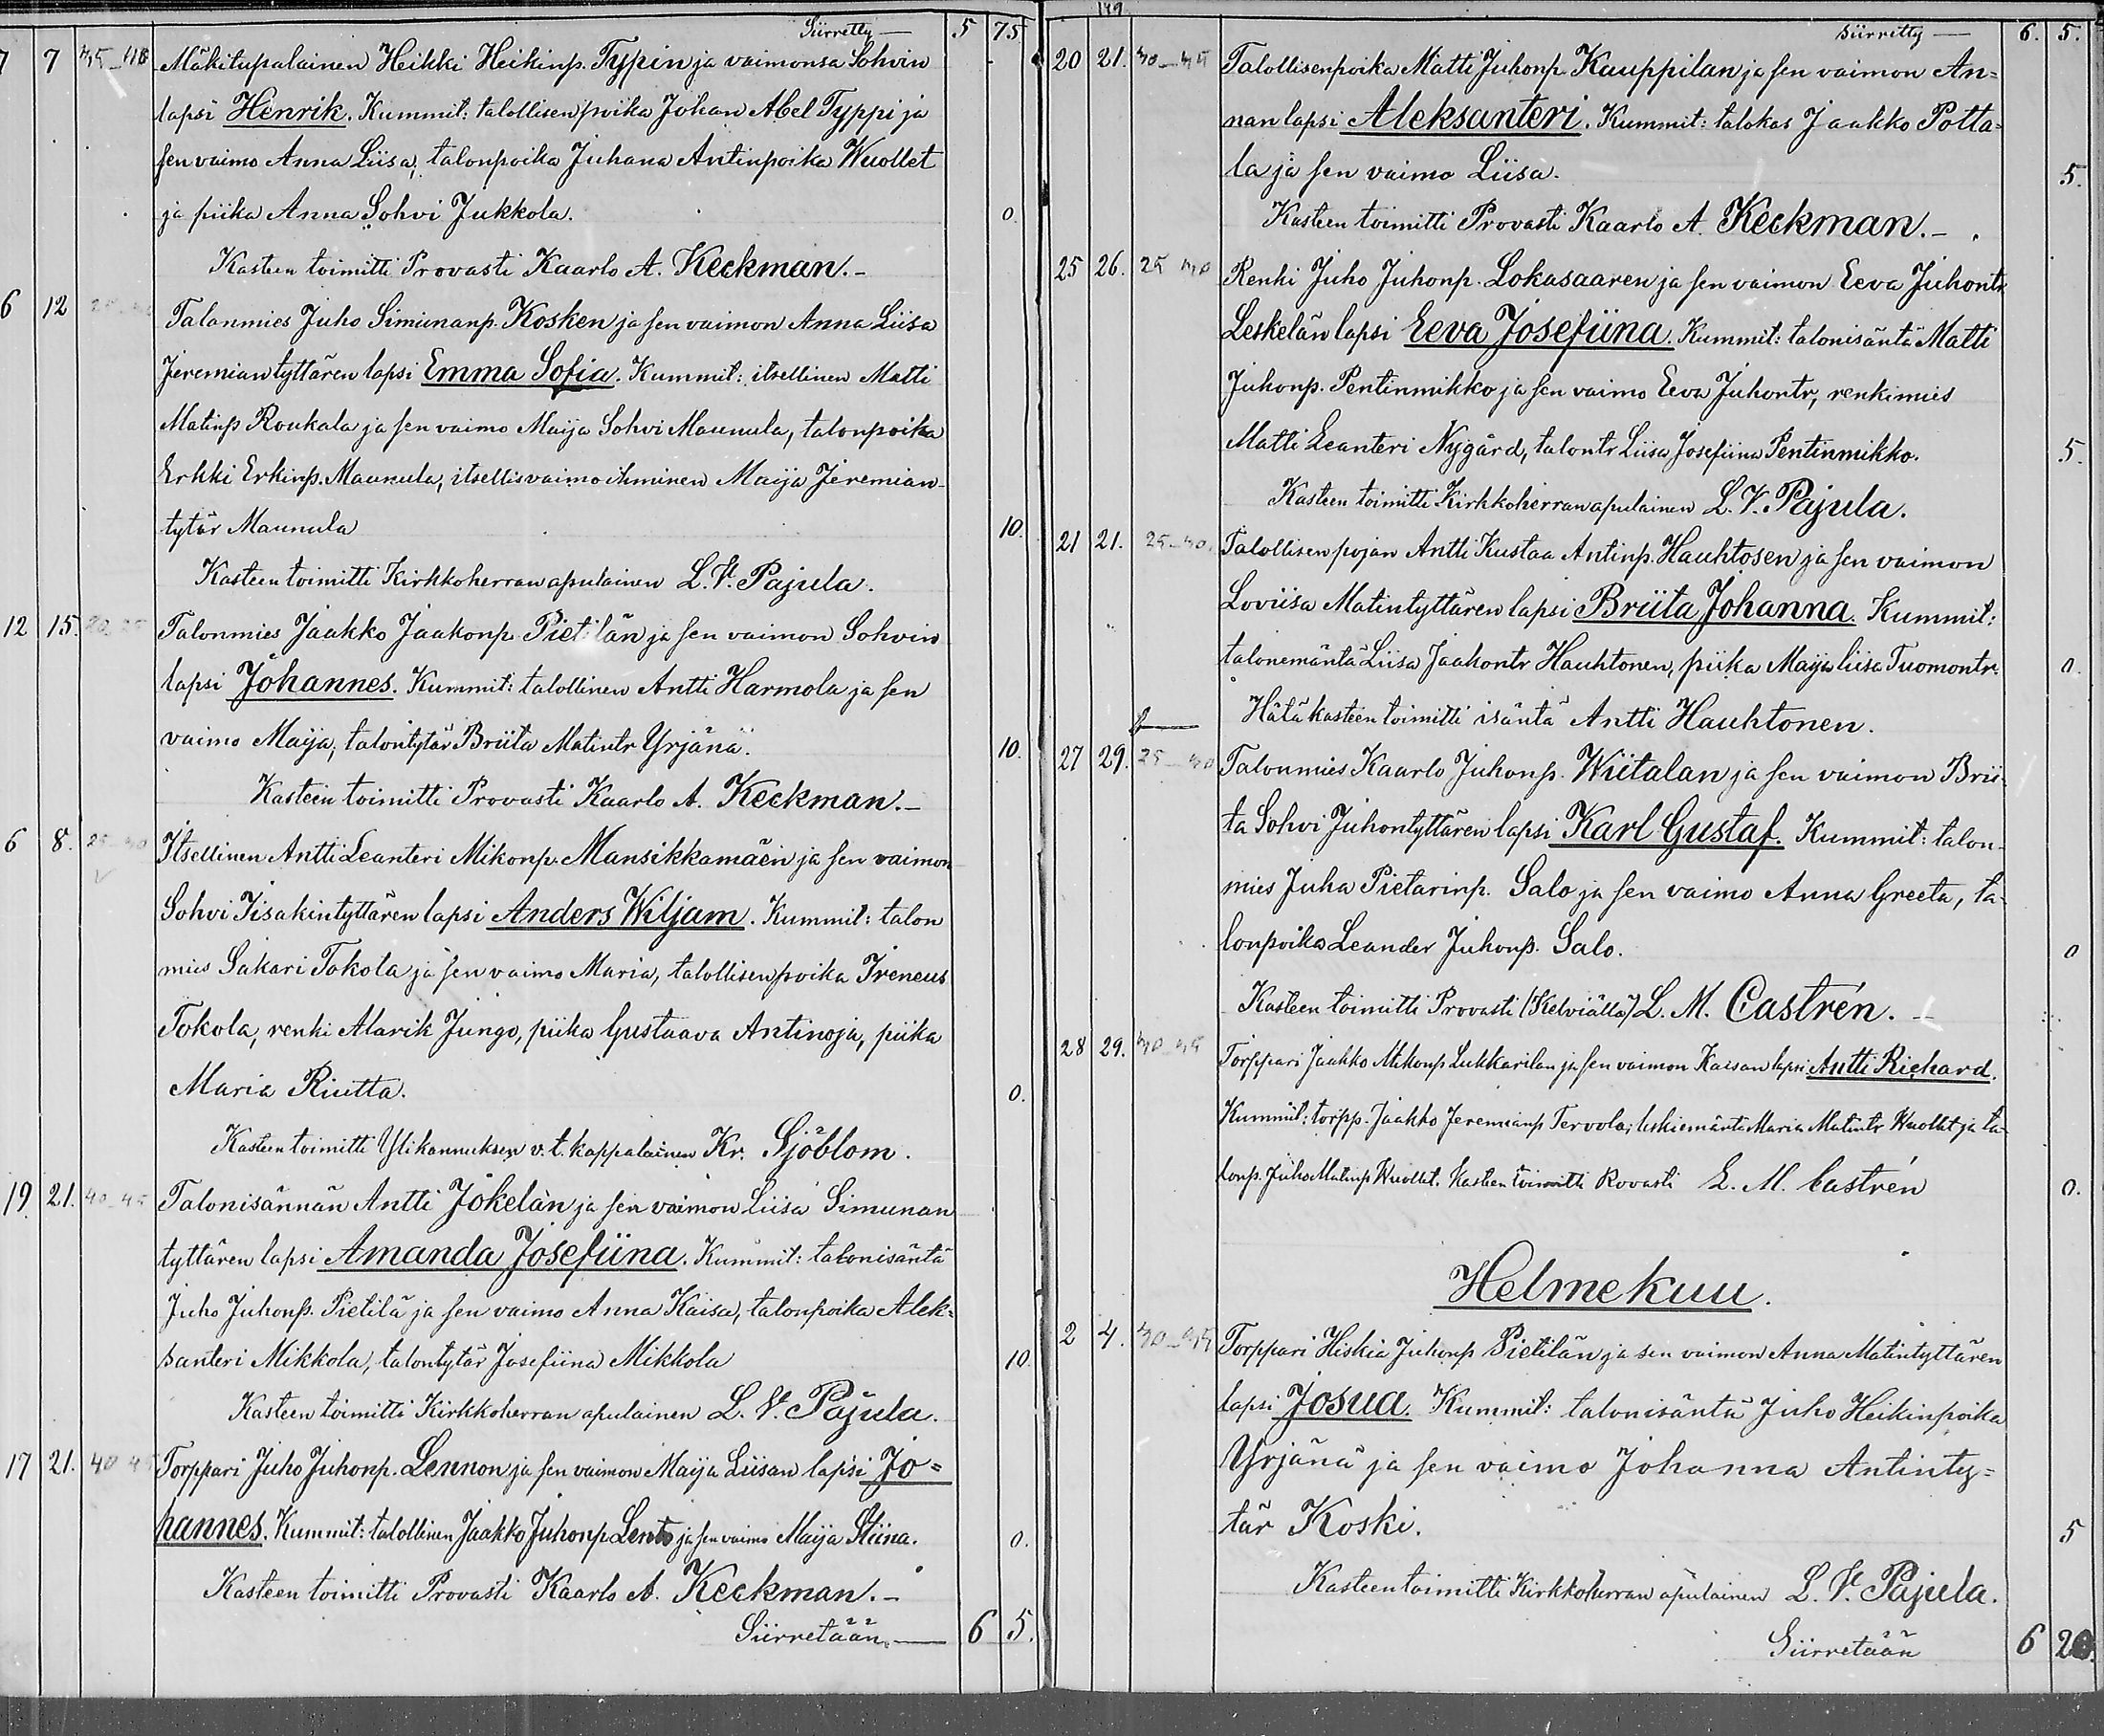 Siirretty — 5 75
7 7 35-40 Mäkitupalainen Heikki Heikinp. Typin ja vaimonsa Sohvin -
lapsi Henrik. Kummit: talollisen poika Johan Abel Typpi ja
sen vaimo Anna Liisa, talonpoika Juhana Antinpoika Wuollet
ja piika Anna Sohvi Jukkola. 0.
Kasteen toimitti Provasti Kaarlo A. Keckman.-
6 12 Talonmies Juho Simunanp. Kosken ja sen vaimon Anna Liisa
Jeremiantyttären lapsi Emma Sofia. Kummit: itsellinen Matti
Matinp Roukala ja sen vaimo Maija Sohvi Maunula, talonpoika
Erkki Erkinp. Maunula, itsellisvaimoihminen Maija Jeremian-
tytär Maunula 10.
Kasteen toimitti Kirkkoherran apulainen L. V. Pajula.
12 15. Talonmies Jaakko Jaakonp. Pietilän ja sen vaimon Sohvin
lapsi Johannes. Kummit: talollinen Antti Harmola ja sen
vaimo Maija, talontytär Briita Matintr Yrjänä. 10.
Kasteen toimitti Provasti Kaarlo A. Keckman.-
6 8. 25-30 Itsellinen Antti Leanteri Mikonp. Mansikkamäen ja sen vaimon
Sohvi Iisakintyttären lapsi Anders Wiljam. Kummit: talon
mies Sakari Tokola ja sen vaimo Maria, talollisenpoika Ireneus
Tokola, renki Alarik Jungo, piika Gustaava Antinoja, piika
Maria Riutta. 0.
Kasteen toimitti Ylikannuksen v. t. kappalainen Kr. Sjöblom.
19. 21. 40-45 Talonisännän Antti Jokelan ja sen vaimon Liisa Simunan
tyttären lapsi Amanda Josefiina. Kummit: talonisäntä
Juho Juhonp. Pietilä ja sen vaimo Anna Kaisa, talonpoika Alek=
santeri Mikkola, talontytär Josefiina Mikkola 10.
Kasteen toimitti Kirkkoherran apulainen L. V. Pajula.
17 21. 40 45 Torppari Juho Juhonp. Lennon ja sen vaimon Maija Liisan lapsi Jo=
hannes. Kummit: talollinen Jaakko Juhonp Lento ja sen vaimo Maija Stiina. 0.
Kasteen toimitti Provasti Kaarlo A. Keckman.-
Siirretään — 6 5.
149
Siirretty — 6. 5.
20 21. 40-45 Talollisenpoika Matti Juhonp. Kauppilan ja sen vaimon An=
nan lapsi Aleksanteri. Kummit: talokas Jaakko Potta=
la ja sen vaimo Liisa. 5.
Kasteen toimitti Provasti Kaarlo A. Keckman.-
25 26. 25 30 Renki Juho Juhonp. Lokasaaren ja sen vaimon Eeva Juhontr
Leskelän lapsi Eeva Josefiina. Kummit: talonisäntä Matti
Juhonp. Pentinmikko ja sen vaimo Eeva Juhontr, renkimies
Matti Leanteri Nygård, talontr Liisa Josefiina Pentinmikko. 5.
Kasteen toimitti Kirkkoherran apulainen L. V. Pajula.
21 21. 25-30. Talollisen pojan Antti Kustaa Antinp. Hauhtosen ja sen vaimon
Loviisa Matintyttären lapsi Briita Johanna. Kummit:
talonemäntä Liisa Jaakontr Hauhtonen, piika Maija Liisa Tuomontr. 0.
Hätäkasteen toimitti isäntä Antti Hauhtonen.
27 29. 25-30 Talonmies Kaarlo Juhonp. Wiitalan ja sen vaimon Brii-
ta Sohvi Juhontyttären lapsi Karl Gustaf. Kummit: talon-
mies Juha Pietarinp. Salo ja sen vaimo Anna Greeta, ta-
lonpoika Leander Juhonp. Salo. 0
Kasteen toimitti Provasti (Kelviällä) L. M. Castrén. -
28 29. 40-45 Torppari Jaakko Mikonp Lukkarilan ja sen vaimon Kaisan lapsi Antti Richard.
Kummit: torpp. Jaakko Jeremianp Tervola, leskiemäntä Maria Matintr Wuollet ja ta-
lonp. Juho Matinp Wuollet. Kasteen toimitti Rovasti L. M. Castrén 0.
Helmekuu.
2 4. 40-45 Torppari Hiskia Juhonp Pietilän ja sen vaimon Anna Matintyttären
lapsi Josua. Kummit: talonisäntä Juho Heikinpoika
Yrjänä ja sen vaimo Johanna Antinty=
tär Koski. 5
Kasteen toimitti Kirkkoherran apulainen L. V. Pajula.
Siirretään 6 20.